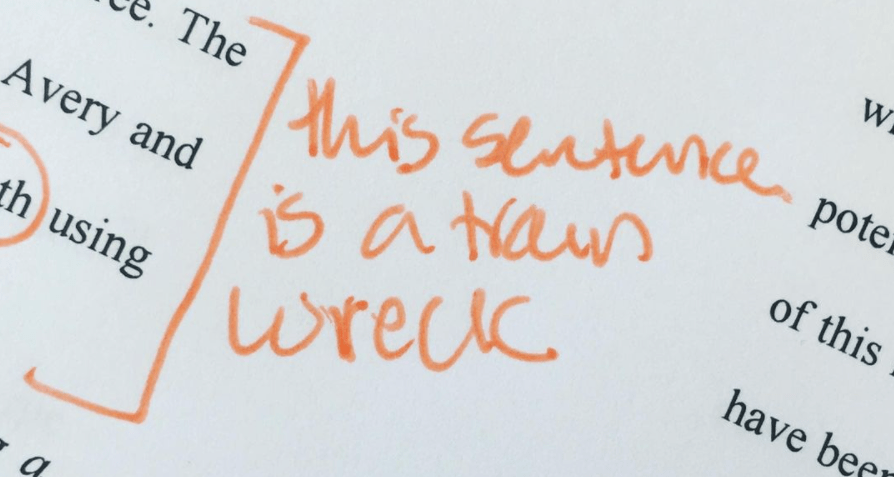 The
Avery and
using
this sentence
is a train
wreck
of this
have been
a